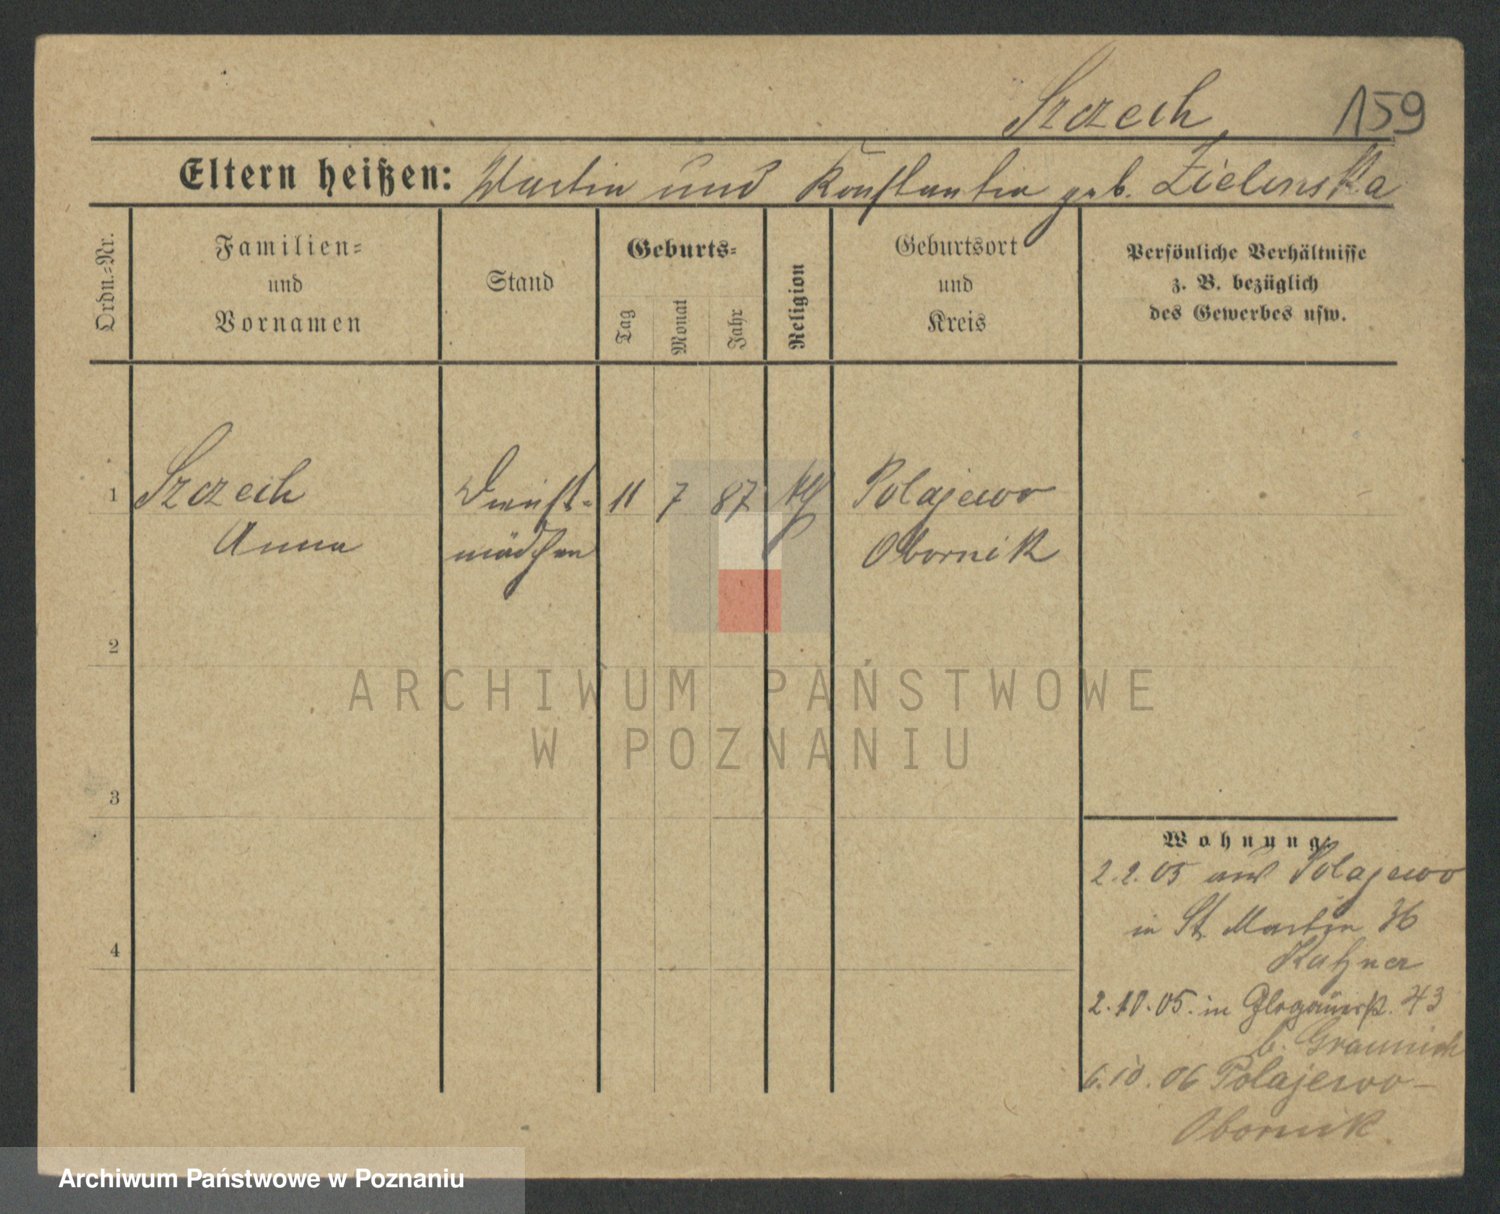 Szczech
159
Eltern heißen: Martin und Konstantia geb. Zielinska
Ordn.-Nr.
Familien-
und
Vornamen
Stand
Geburts-
Tag
Monat
Jahr
Religion
Geburtsort
und
Kreis
Persönliche Verhältnisse
z. B. bezüglich
des Gewerbes usw.
1
Szczech
Anna
Dienst-
mädchen
11
7
87
Polajewo
Obornik
2
3
4
ARCHIWUM PAŃSTWOWE
W POZNANIU
Wohnung:
2.2.05 aus Polajewo
in St. Martin 36
2.10.05. in Glogauerst. 43
6.10.06 Polajewo-
Obornik
Archiwum Państwowe w Poznaniu